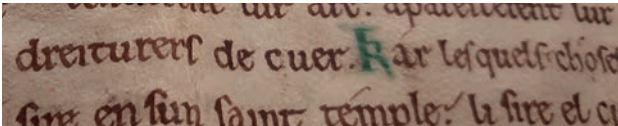 lur arc. apareillerent lur
dreiturers de cuer. Kar lesquels chose
sire en sun saint temple. li sire el